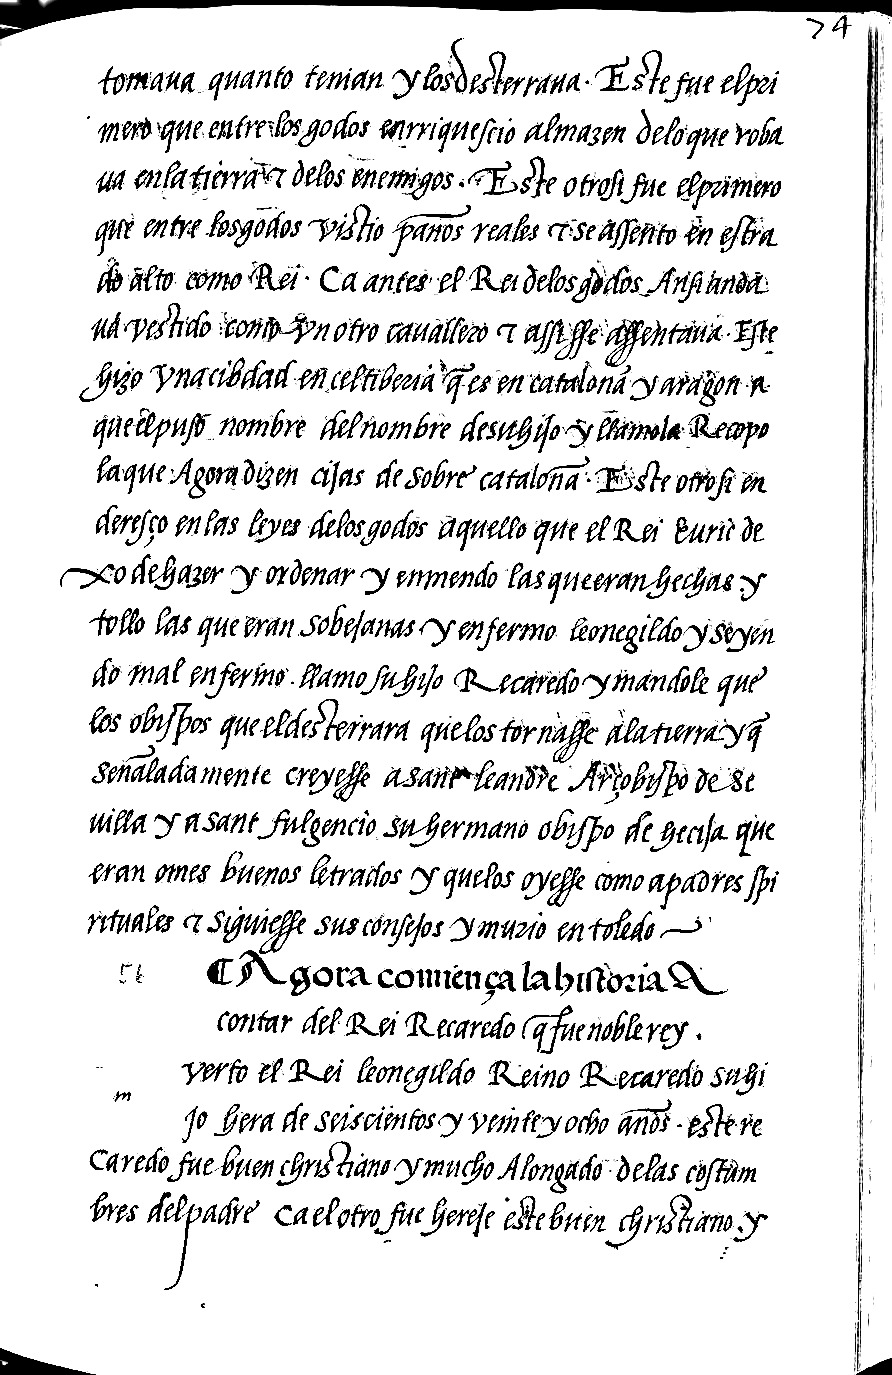 74
tomaua quanto tenian y los desterraua. Este fue el pri
mero que entre los godos enrriquescio almazen de lo que roba
ua en la tierra τ de los enemigos. Este otrosi fue el primero
que entre los godos vistio pãnos reales τ se assento en estra
do alto como Rei. Ca antes el Rei de los godos Ansi anda
ua vestido como vn otro cauallero τ assi sse assentaua. Este
hizo vna cibdad en celtiberia q̃ es en cataloña y aragon a
que el puso nombre del nombre de su hijo y llamola Recopo
la que Agora dizen cijas de sobre cataloña. Este otrosi en
deresço en las leyes de los godos aquello que el Rei Euric de
xo de hazer y ordenar y enmendo las que eran hechas y
tollo las que eran sobejanas y enfermo leonegildo y seyen
do mal enfermo. llamo su hijo Recaredo y mandole que
los obispos que el desterrara que los tornasse a la tierra y q̃
señaladamente creyesse a sant leandre Arçobispo de Se
uilla y a sant fulgencio su hermano obispo de hecija que
eran omes buenos letrados y que los oyesse como a padres spi
rituales τ siguiesse sus consejos y murio en toledo
56 ¶ Agora comiença la historia A
contar del Rei Recaredo q̃ fue noble rey.
verto el Rei leonegildo Reino Recaredo su hi
m
jo hera de seiscientos y veinte y ocho años. este re
Caredo fue buen christiano y mucho Alongado de las costum
bres del padre Ca el otro fue hereje este buen christiano y